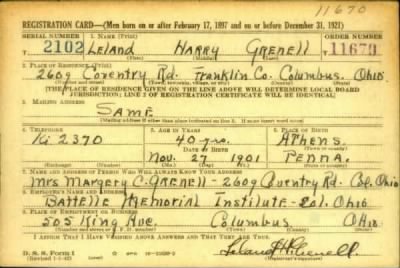 11670
REGISTRATION CARD—(Men born on or after February 17, 1897 and on or before December 31, 1921)
SERIAL NUMBER 1. NAME (Print) ORDER NUMBER
2102 Leland HARRY Grenell 11670
(First) (Middle) (Last)
2. PLACE OF RESIDENCE (Print)
2609 Coventry Rd. Franklin Co. Columbus. Ohio.
(Number and street) (Town, township, village, or city) (County) (State)
[THE PLACE OF RESIDENCE GIVEN ON THE LINE ABOVE WILL DETERMINE LOCAL BOARD
JURISDICTION; LINE 2 OF REGISTRATION CERTIFICATE WILL BE IDENTICAL]
3. MAILING ADDRESS
SAME
[Mailing address if other than place indicated on line 2. If same insert word same]
4. TELEPHONE 5. AGE IN YEARS 6. PLACE OF BIRTH
40 yrs. Athens
Ki 2370 DATE OF BIRTH
Nov. 27 1901 Penna.
(Exchange) (Number) (Mo.) (Day) (Yr.) (State or country)
7. NAME AND ADDRESS OF PERSON WHO WILL ALWAYS KNOW YOUR ADDRESS
Mrs Margery C. Grenell - 2609 Coventry Rd. Col. Ohio
8. EMPLOYER'S NAME AND ADDRESS
Battelle Memorial Institute - Col. Ohio
9. PLACE OF EMPLOYMENT OR BUSINESS
505 King Ave. Columbus Ohio.
(Number and street or R. F. D. number) (Town) (County) (State)
I AFFIRM THAT I HAVE VERIFIED ABOVE ANSWERS AND THAT THEY ARE TRUE.
D. S. S. Form 1 Leland H Grenell.